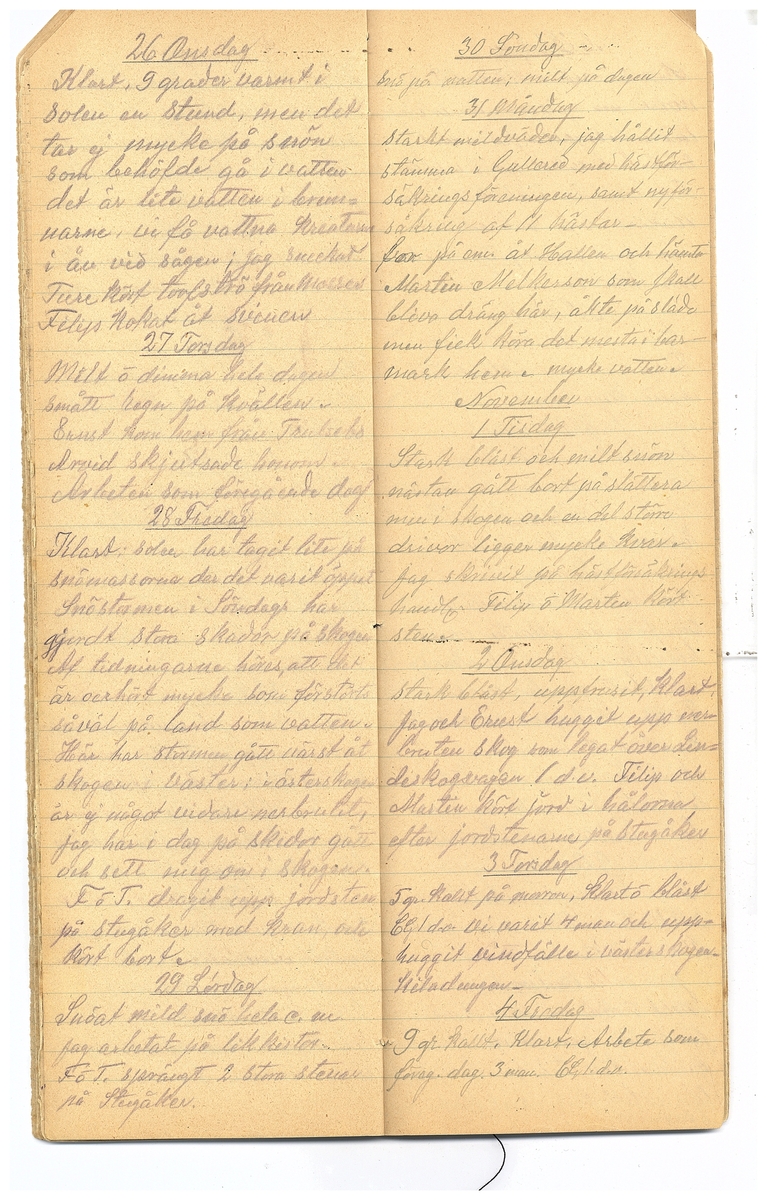 26 Onsdag
Klart, 9 grader varmt i
solen en stund, men det
tar ej mycke på snön
som behöfde gå i vatten
det är lite vatten i brun=
narne, vi få vattna Kreaturen
i åv vid sågen; jag snickat
Ture kört torfströ från mossen
Filip kokat åt svinen
27 Torsdag
Milt ö dimma hela dagen
smått regn på kvällen.
Ernst kom hem från
Arvid skjutsade honom.
Arbeten som föregående dag
28 Fredag
Klart; solen har tagit lite på
snömassorna der det varit öppet
Snöstormen i Söndags har
gjordt stora skador på skogen
Af tidningarne höres, att det
är oerhört mycke som förstörts
såväl på land som vatten.
Här har stormen gått värst åt
skogen i väster; i österskogen
är ej något vidare nerbrutit,
jag har i dag på skidor gått
och sett mig om i skogen.
F ö T. dragit upp jordsten
på stugåker med kran, och
kört bort.
29 Lördag
Snöat mild snö hela e. m
jag arbetat på likkistor.
F ö T. sprängt 2 stora stenar
på Stugåker.
30 Söndag
snö på natten; milt på dagen
31 Måndag
starkt mildväder, jag hållit
stämma i Gullered med hästför-
säkringsföreningen, samt nyför-
säkring af 11 hästar.
for på em. åt Hallen och hämta
Martin Melkersson som skall
bliva dräng här, åkte på släde
men fick köra det mesta i bar-
mark hem. mycke vatten.
November
1 Tisdag
Stark blåst och milt snön
nästan gått bort på slättera
men i skogen och en del större
drivor ligger mycke kvar.
Jag skrivit på hästförsäkrings
handl. Filip ö Martin kört
sten.
2 Onsdag
stark blåst, uppfrusit, Klart,
Jag och Ernst huggit upp ner-
bruten skog som legat över Lin=
deskogsvägen 1 d.v. Filip och
Martin kört jord i hålorna
efter jordstenarne på Stugåker
3 Torsdag
5 gr. kallt på moron, Klart ö blåst
1 d.v. vi varit 4 man och upp-
huggit vindfälle i västerskogen
4 Fredag
9 gr. kallt. Klart. Arbete som
föreg. dag. 3 man. 1 d.v.